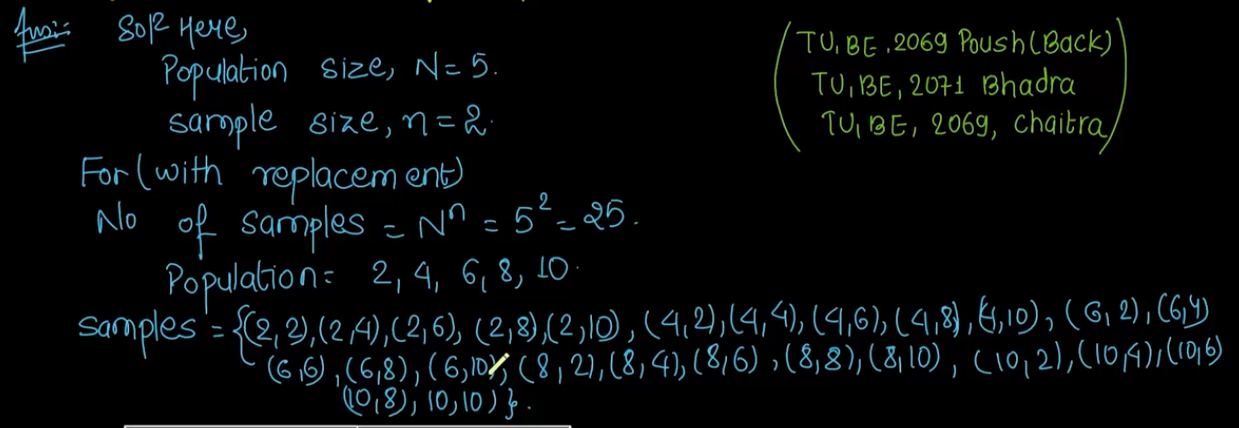 Ans:- Sol² Here,
Population size, N = 5.
sample size, n = 2.
(TU, BE, 2069 Poush (Back)
TU, BE, 2071 Bhadra
TU, BE, 2069, Chaitra)
For (with replacement)
No of samples = Nⁿ = 5² = 25.
Population = 2, 4, 6, 8, 10.
samples = {(2,2),(2,4),(2,6), (2,8),(2,10), (4,2),(4,4),(4,6),(4,8),(4,10), (6,2),(6,4)
(6,6), (6,8), (6,10), (8,2),(8,4),(8,6), (8,8),(8,10), (10,2),(10,4),(10,6)
(10,8), 10,10)}.